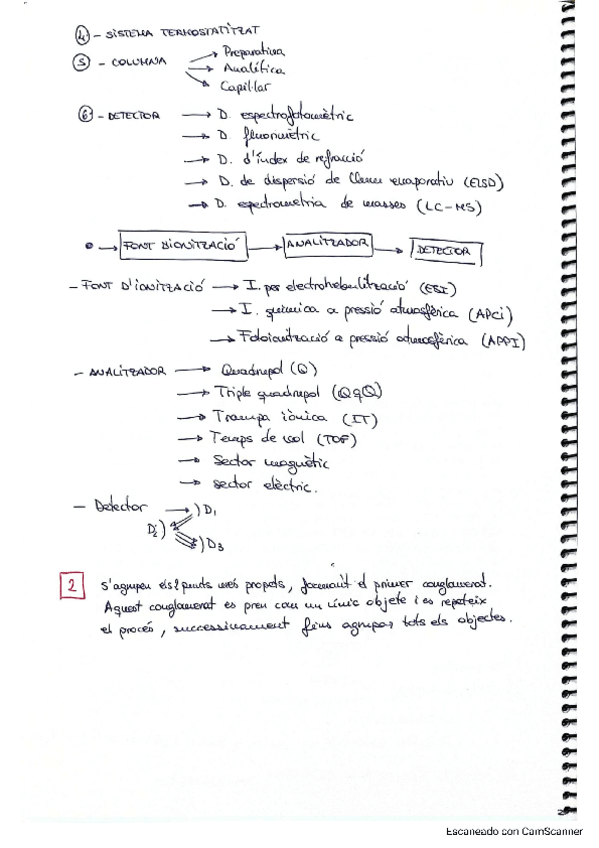 4 - SISTEMA TERMOSTATITZAT
5 - COLUMNA → Preparativa
→ Analítica
→ Capil·lar
6 - DETECTOR → D. espectrofotomètric
→ D. fluorimètric
→ D. d'índex de refracció
→ D. de dispersió de llum evaporativ (ELSD)
→ D. espectrometria de masses (LC-MS)
• → FONT D'IONITZACIÓ → ANALITZADOR → DETECTOR
- FONT D'IONITZACIÓ → I. per electronebulització (ESI)
→ I. química a pressió atmosfèrica (APCi)
→ Fotoionització a pressió atmosfèrica (APPI)
- ANALITZADOR → Quadrupol (Q)
→ Triple quadrupol (QqQ)
→ Trampa iònica (IT)
→ Temps de vol (TOF)
→ Sector magnètic
→ sector elèctric.
- Detector → ) D1
D2 )
) D3
2 S'agrupen els 2 punts més propers, formant el primer conglomerat.
Aquest conglomerat es pren com un únic objecte i es repeteix
el procés, successivament fins agrupar tots els objectes.
2
Escaneado con CamScanner